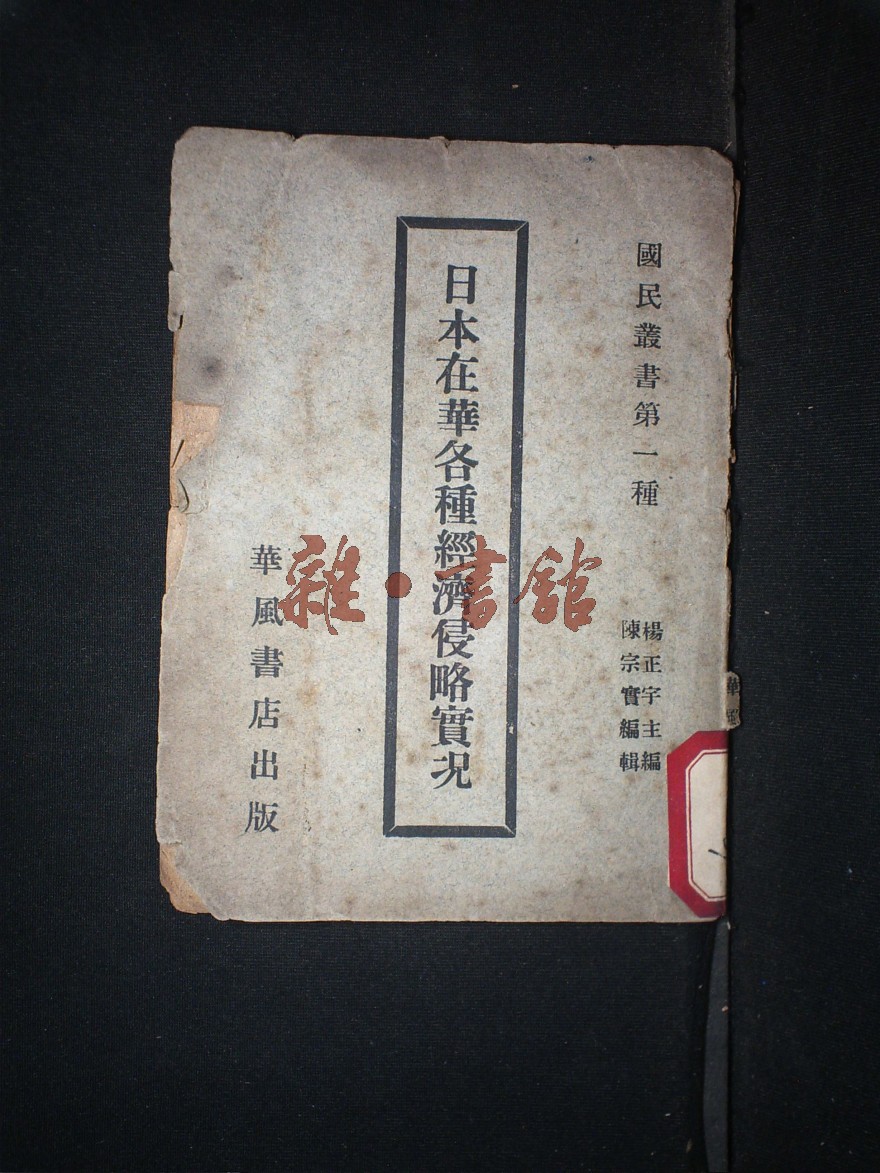 國民叢書第一種
楊正宇主編
陳宗實編輯
日本在華各種經濟侵略實況
華風書店出版
雜·書館
華風